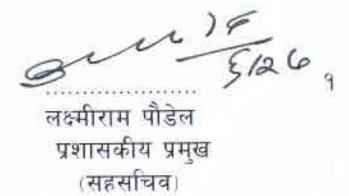 १
....................
लक्ष्मीराम पौडेल
प्रशासकीय प्रमुख
(सहसचिव)